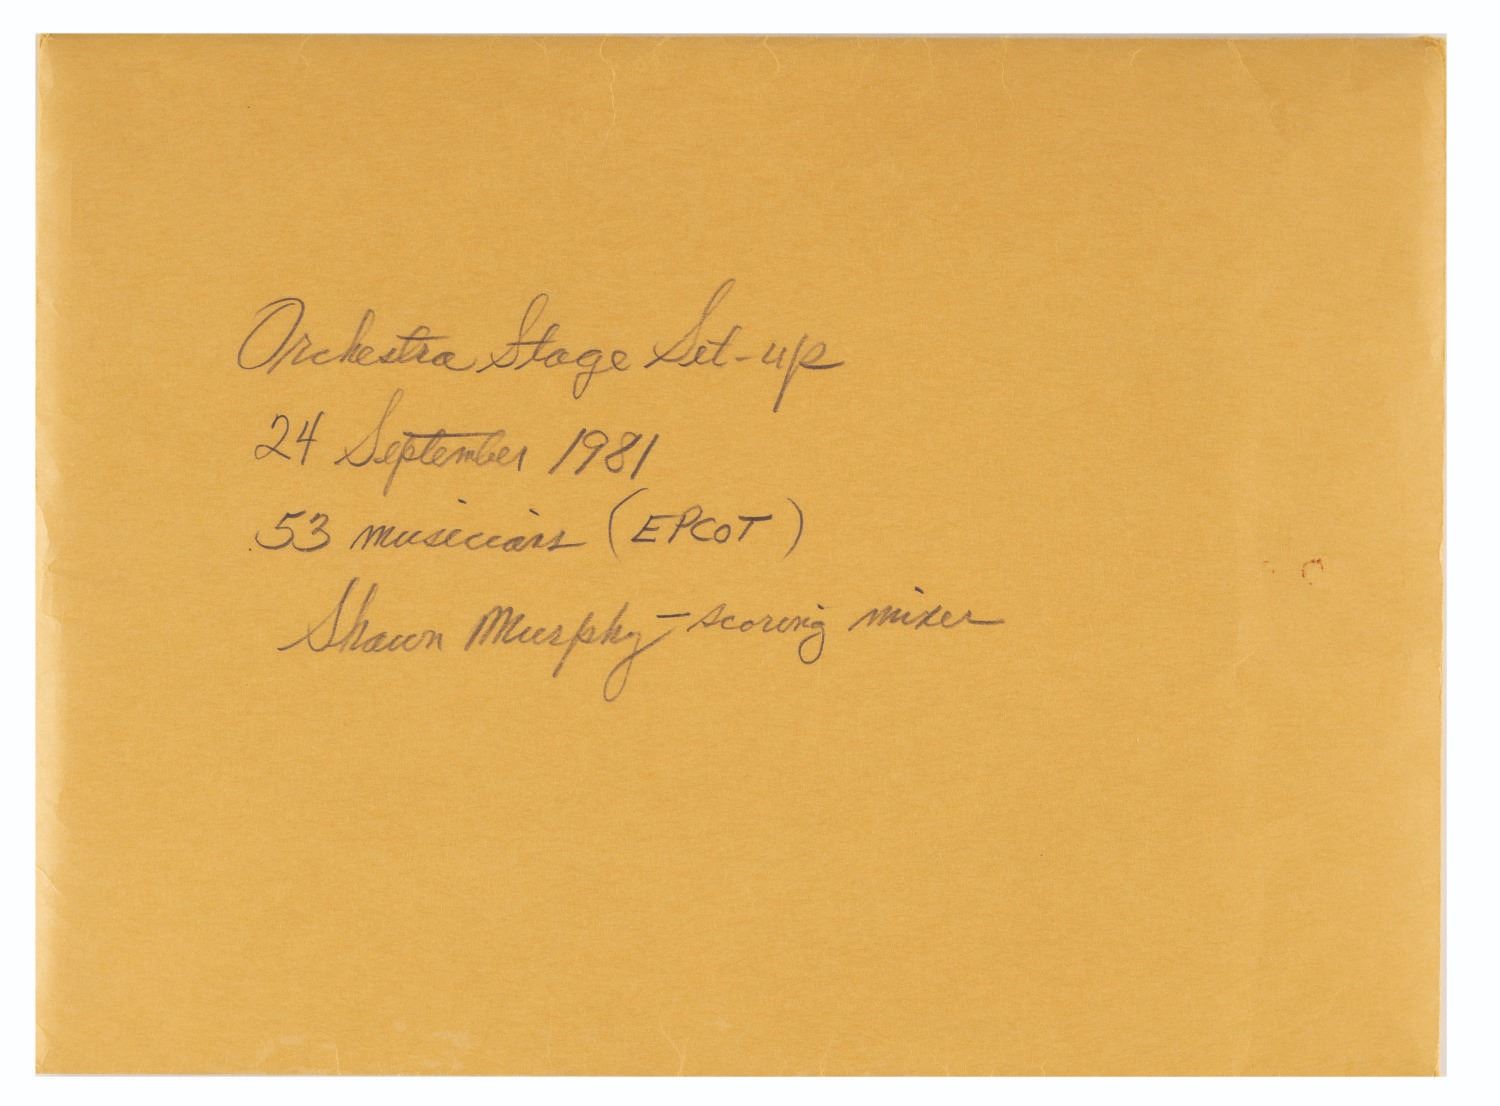 Orchestra Stage Set-up
24 September 1981
53 musicians (EPCOT)
Shawn Murphy - scoring mixer